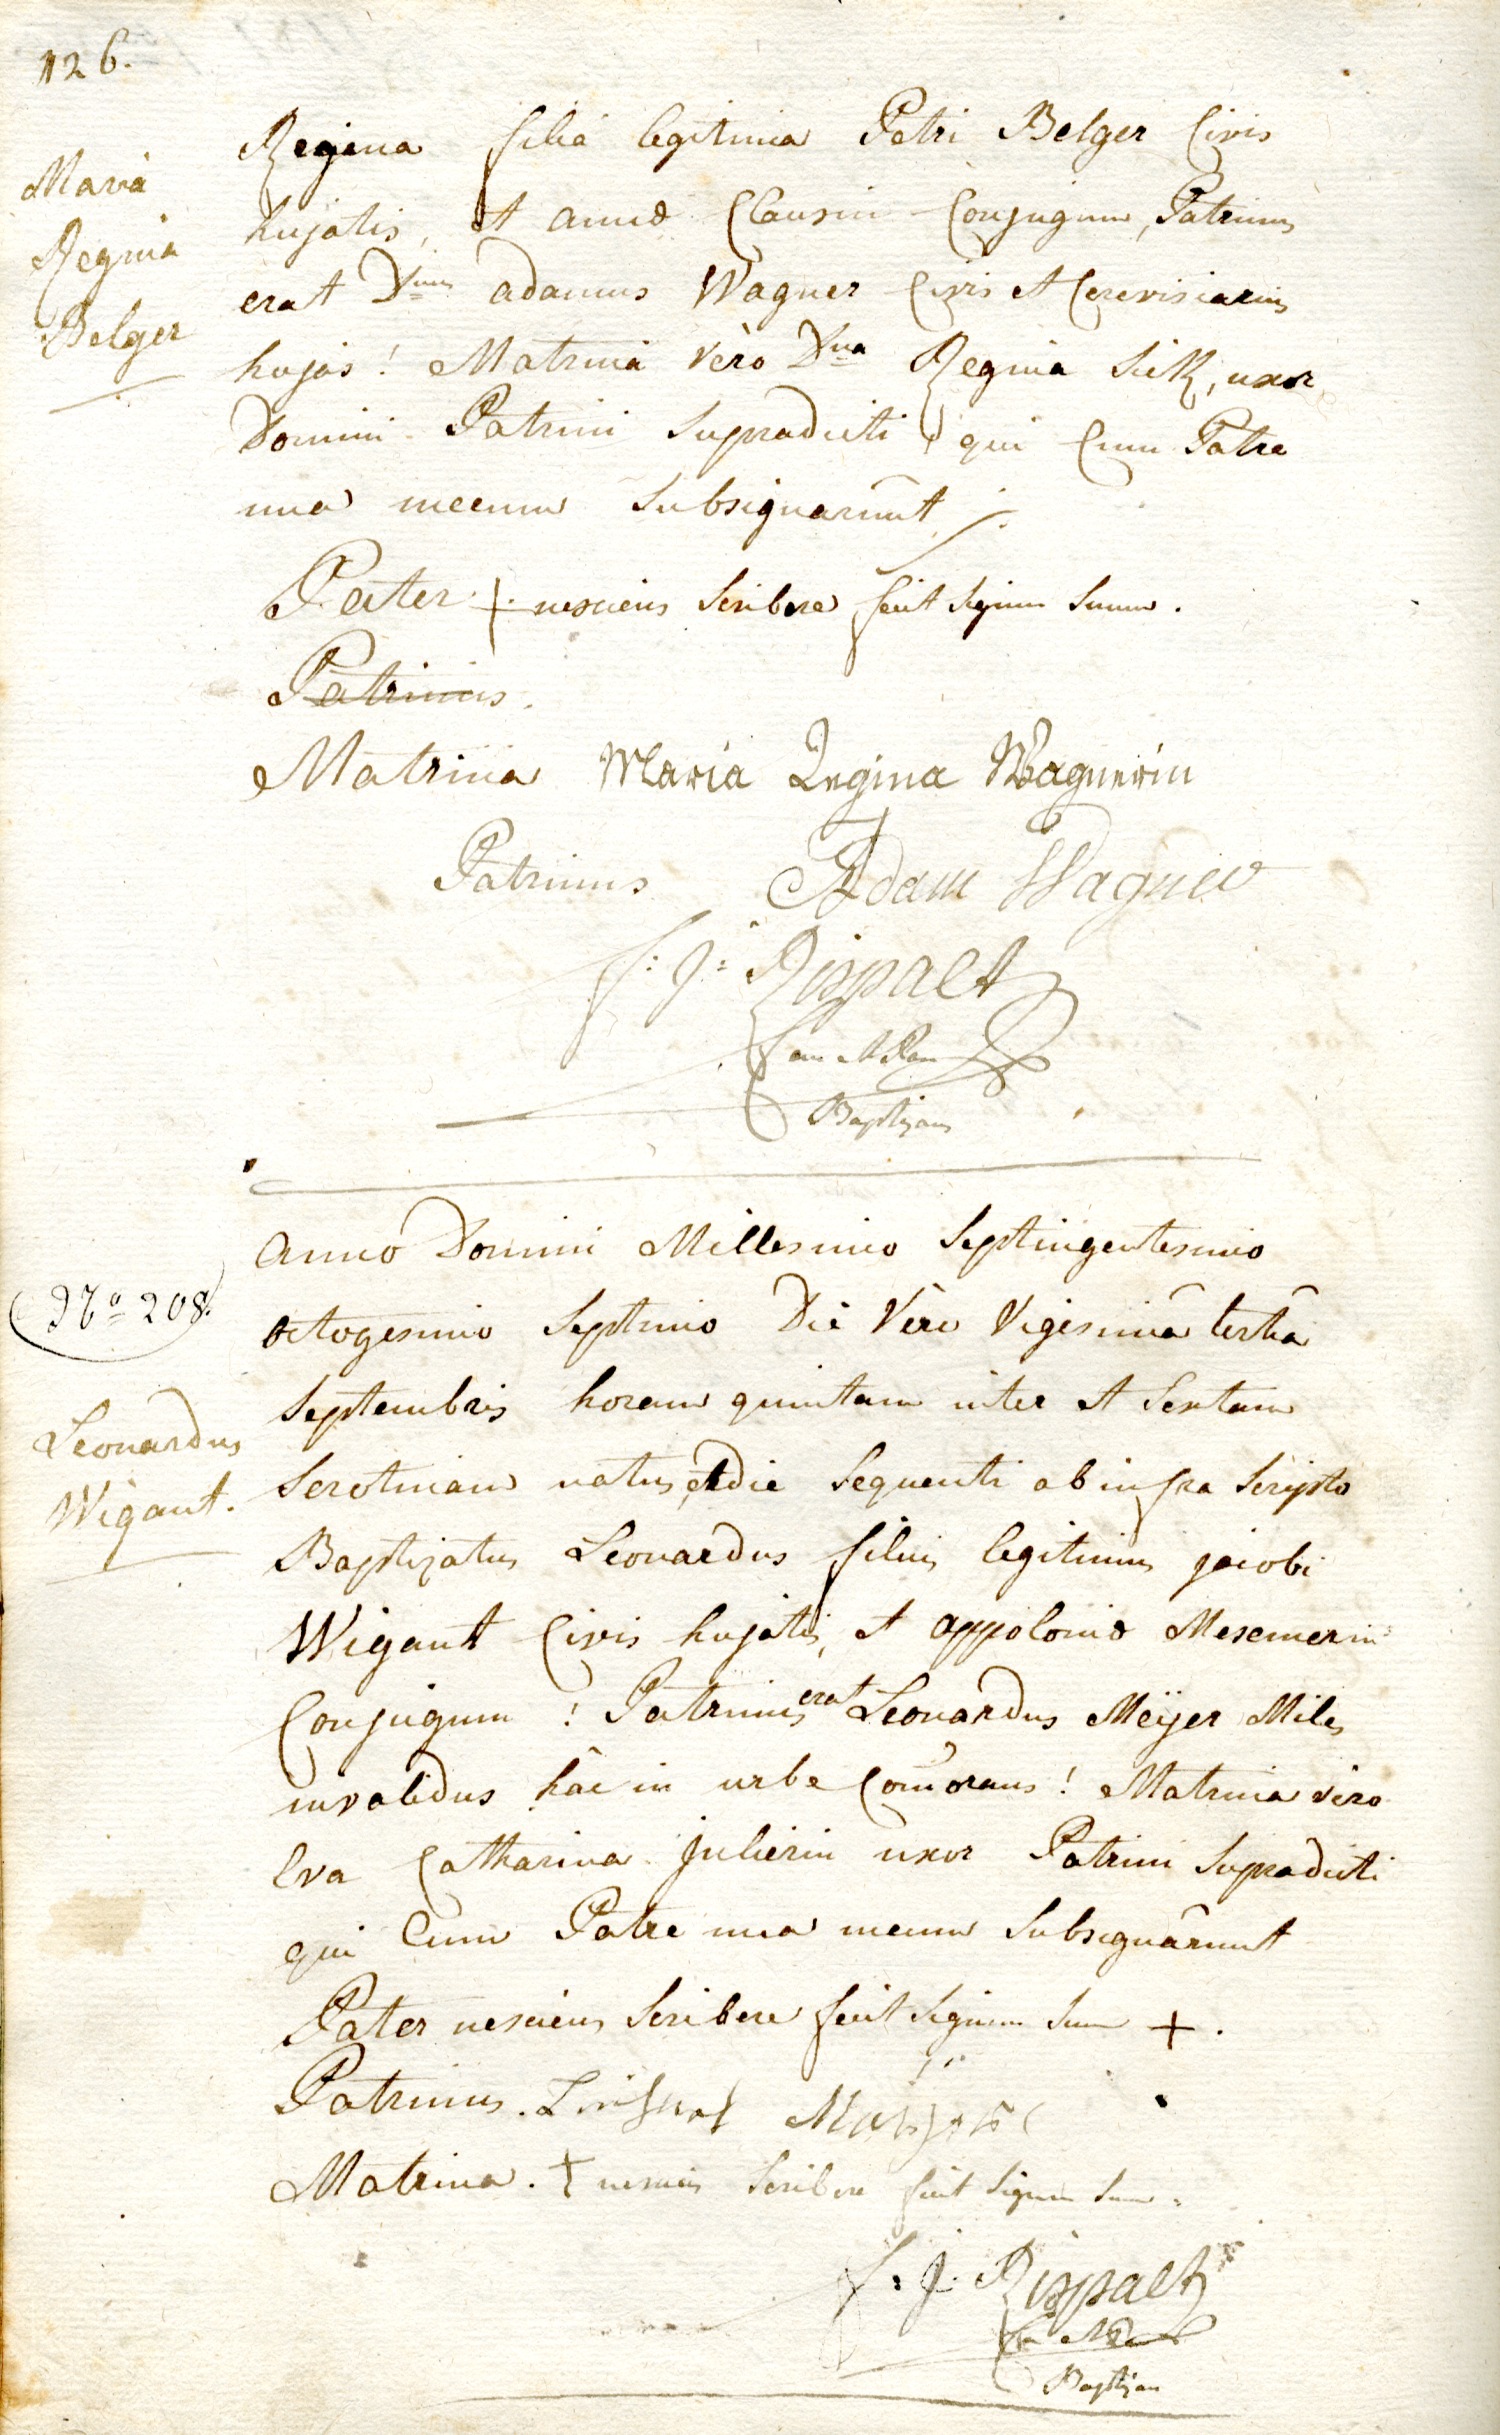 126.
Maria
Regina
Belger
Regina filia legitima Petri Belger Civis
hujatis, et annæ Clausin Conjugum, Patrinus
erat Dnus adamus Wagner Civis et Cerevisiarius
hujas! Matrina vèro Dna Regina Sitz, uxor
Domini Patrini Supradicti qui Cum Patre
una mecum Subsignarunt
Pater + nesciens Scribere fecit Signum Suum.
Patrinus.
Matrina Maria Regina Wagnerin
Patrinus Adam Wagner
f: J: Rispalt
Can
Baptizans
Anno Domini Millesimo Septingentesimo
octogesimo Septimo Die Vero Vigesimâ tertiâ
Septembris horam quintam inter et Sextam
Serotinam natus, et die Sequenti ab infra Scripto
Baptizatus Leonardus filius legitimus jacobi
Wigant Civis hujatis, et appoloniæ Mesemerin
Conjugum! Patrinus erat Leonardus Meÿer Miles
invalidus hâc in urbe Comorans! Matrina vero
Eva Catharina Julierin uxor Patrini Supradicti
qui Cum Patre una mecum Subsignârunt
Pater nesciens Scribere fecit Signum Suum +.
Patrinus.
Matrina. + nesciens Scribere fecit Signum Suum.
f: J: Rispalt
Baptizans
No 208.
Leonardus
Wigant.